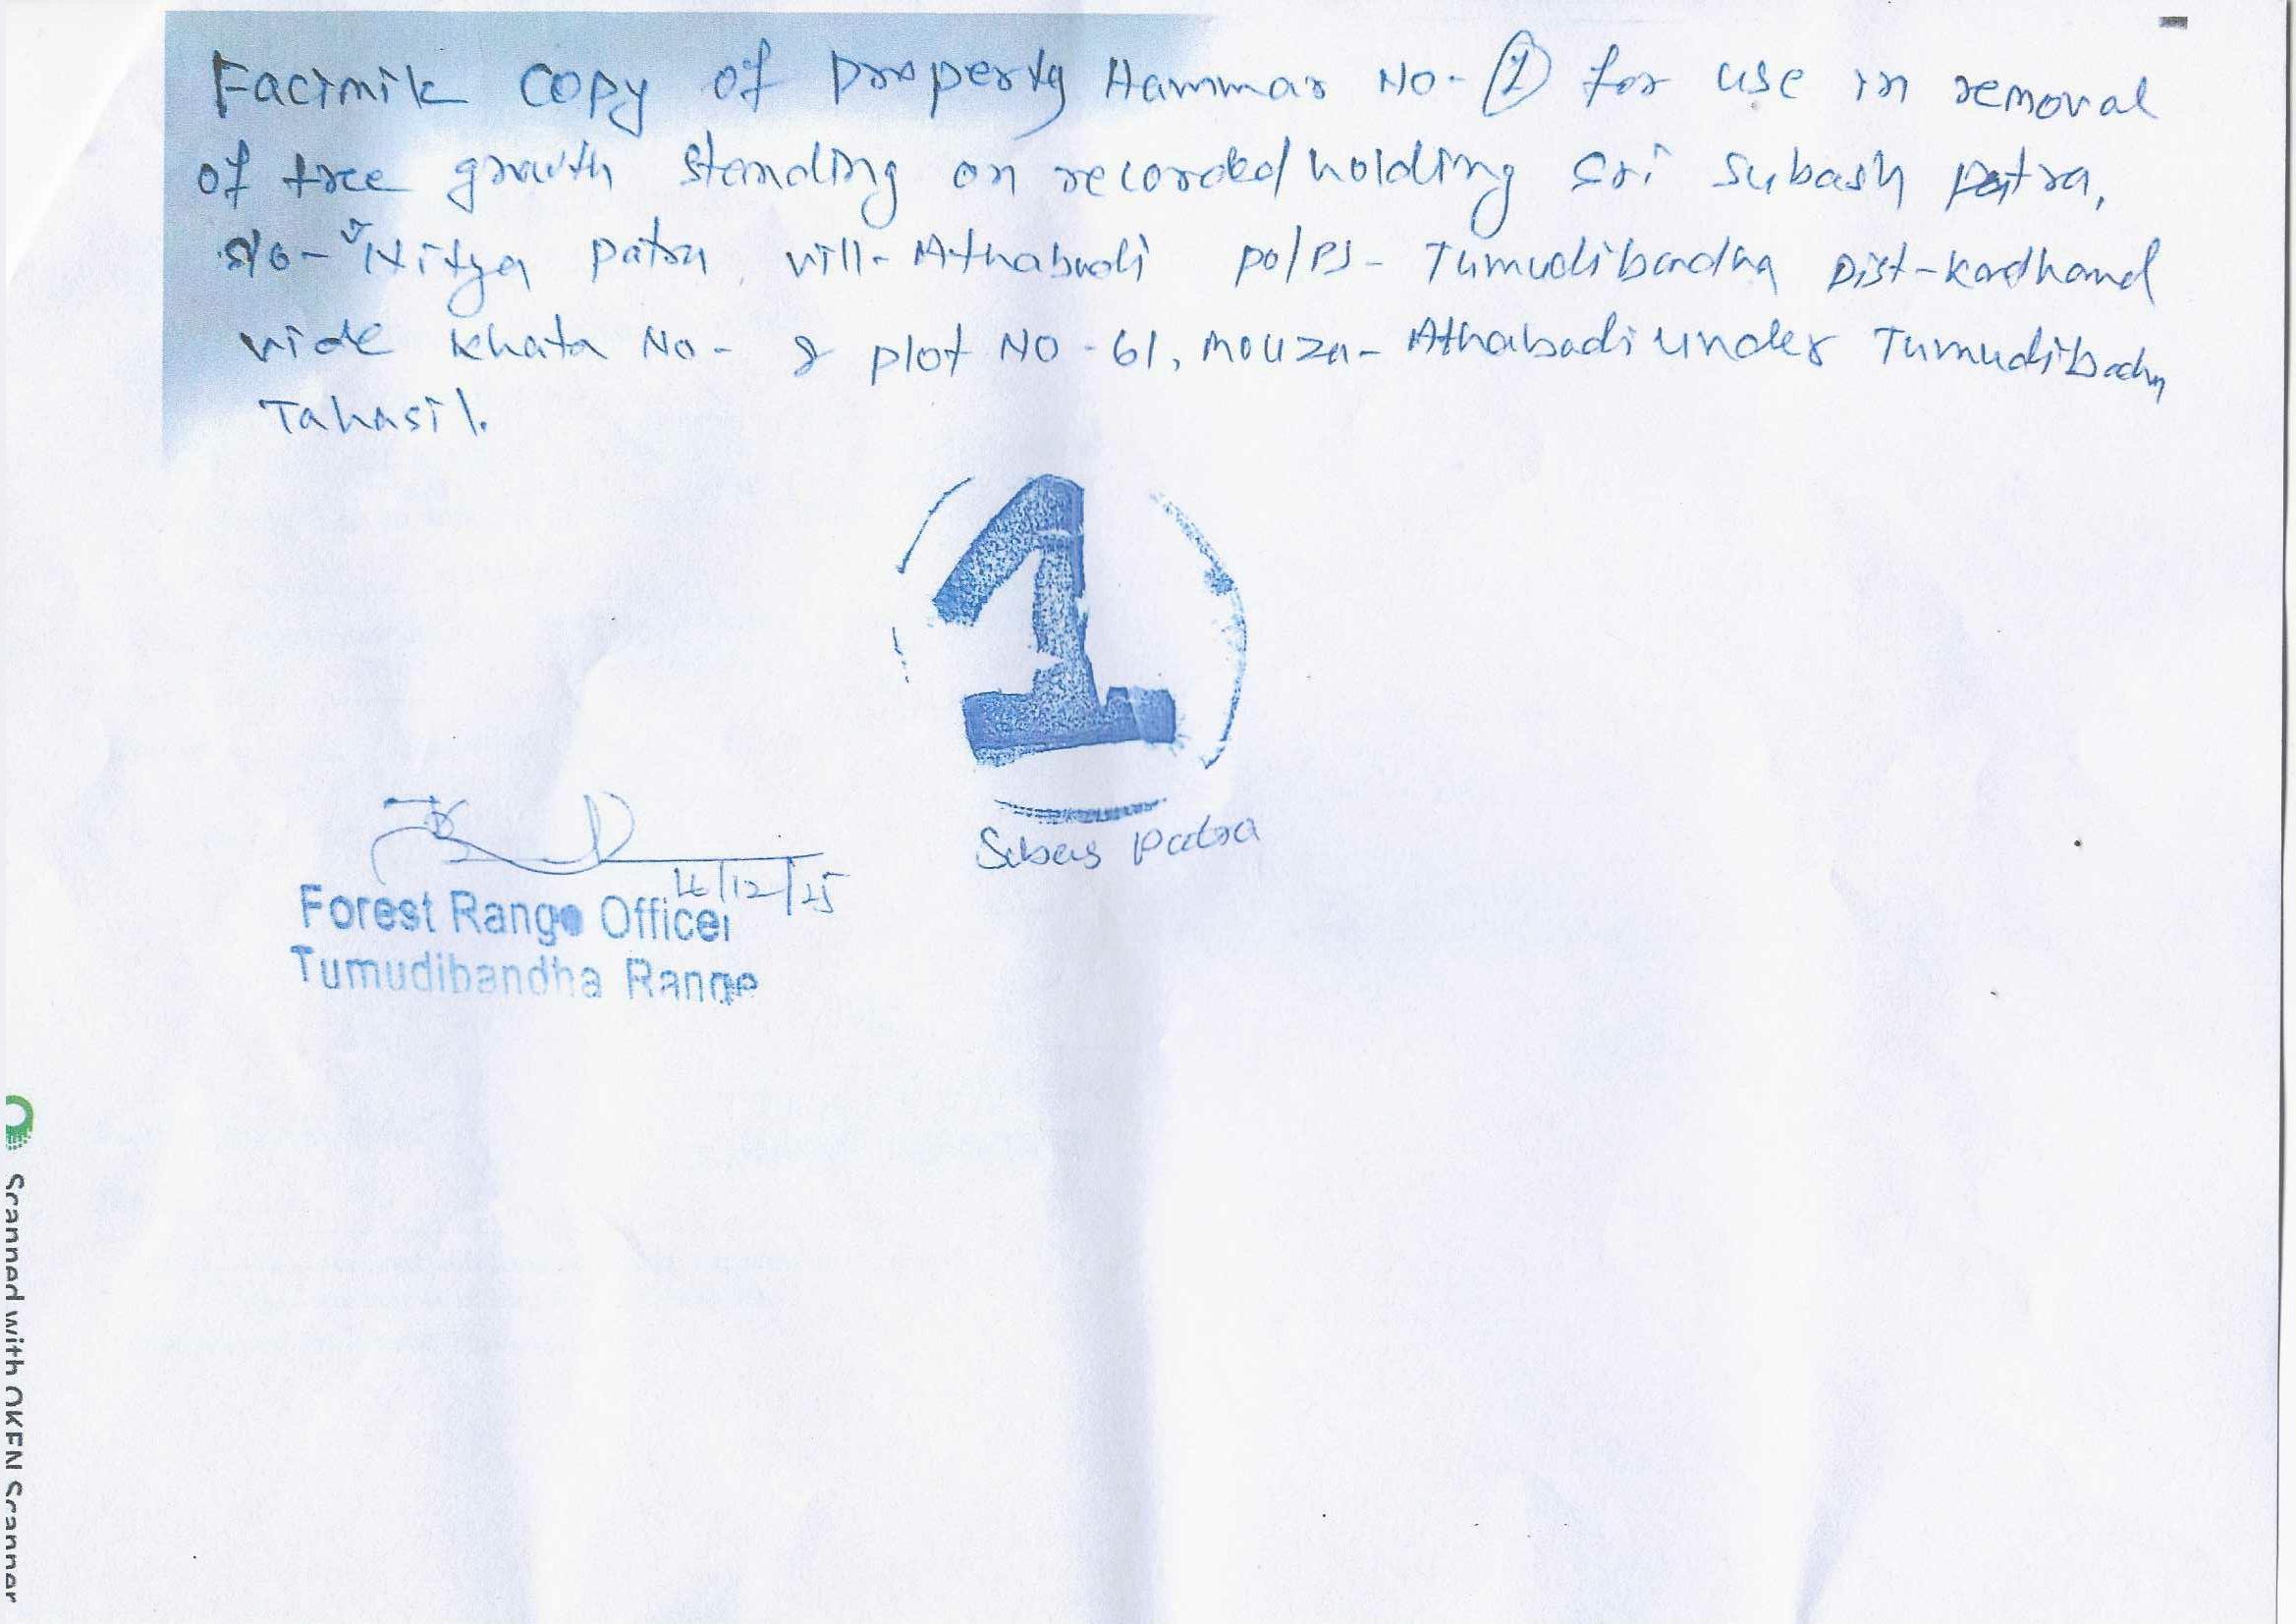 Facimik copy of property Hammar No- 1 for use in removal
of tree growth standing on recorded holding Sri Subash Patra,
S/o- Nitya Patra vill- Athabadi Po/PS- Tumudibandha Dist-Kandhamal
vide Khata No- 8 plot NO-61, Mouza- Athabadi under Tumudibadha
Tahasil.
1
Subas Patra
16/12/25
Forest Range Officer
Tumudibandha Range
Scanned with OKEN Scanner